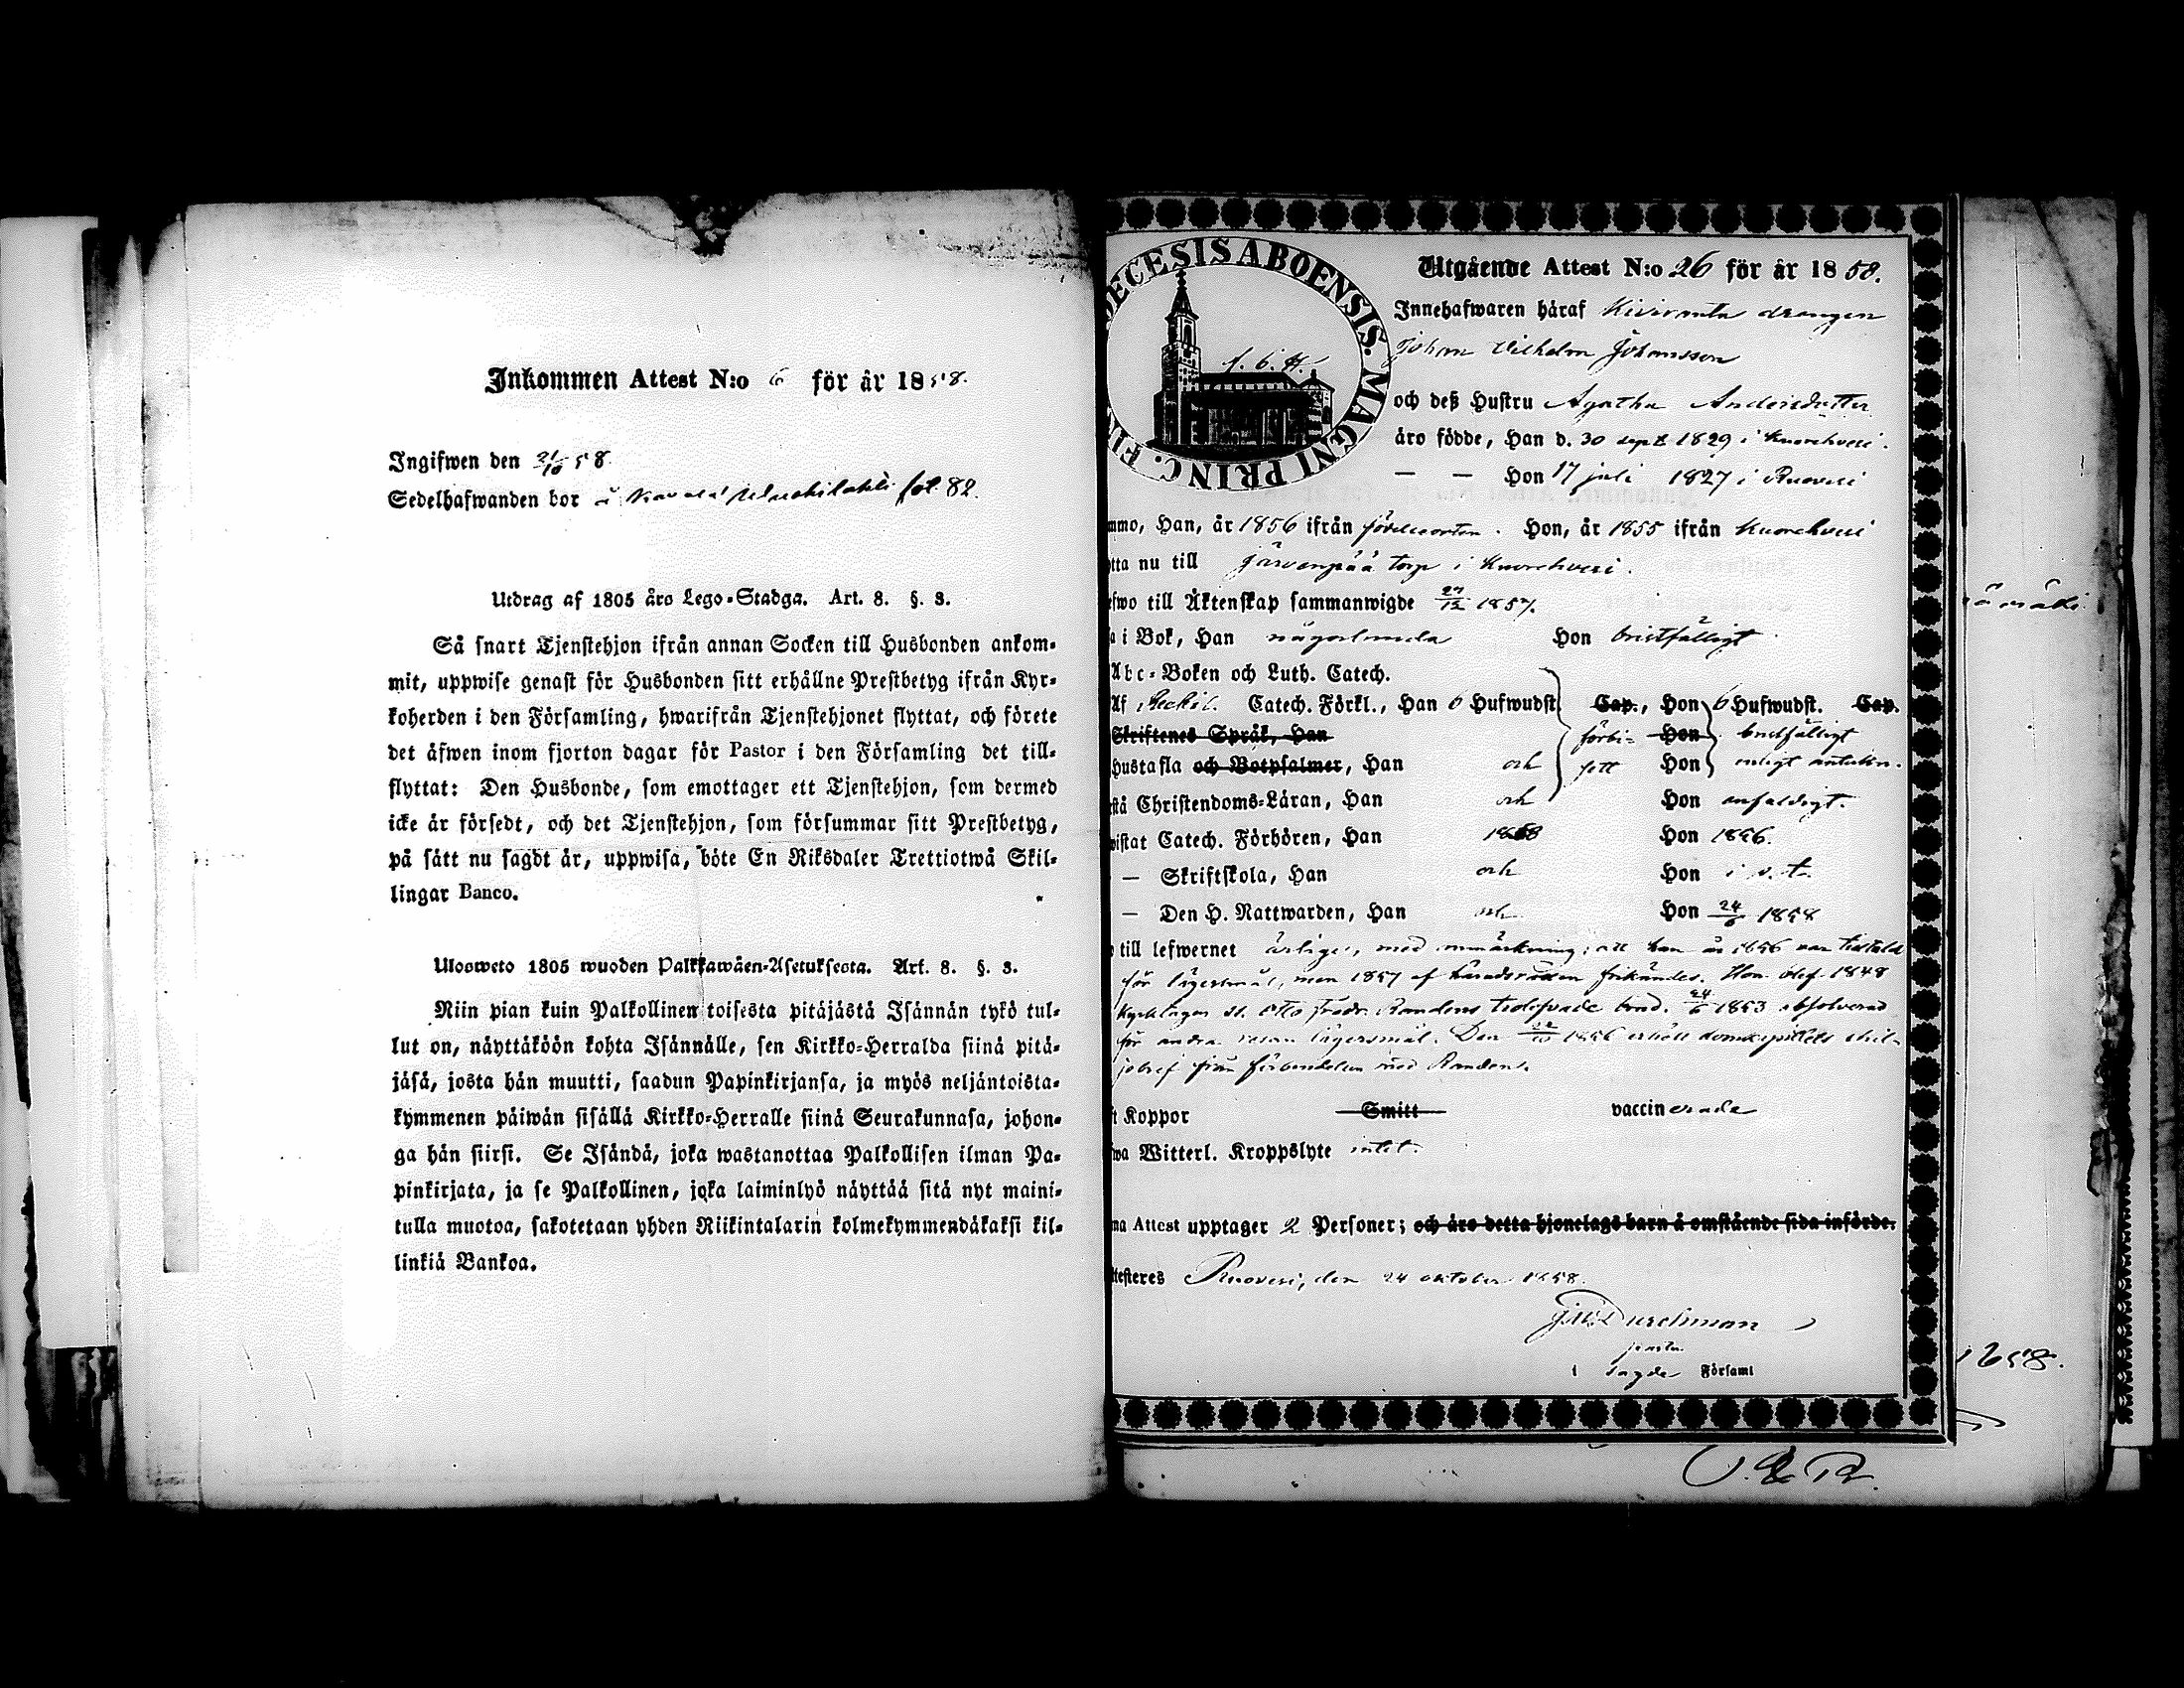 Inkommen Attest N:o 6 för år 1858.
Ingifwen den 31/10 58.
Sedelhafwanden bor å fol. 82.
Utdrag af 1805 års Lego-Stadga. Art. 8. §. 3.
Så snart Tjenstehjon ifrån annan Socken till Husbonden ankom-
mit, uppwise genast för Husbonden sitt erhållne Prestbetyg ifrån Kyr-
koherden i den Församling, hwarifrån Tjenstehjonet flyttat, och förete
det äfwen inom fjorton dagar för Pastor i den Församling det till-
flyttat: Den Husbonde, som emottager ett Tjenstehjon, som dermed
icke är försedt, och det Tjenstehjon, som försummar sitt Prestbetyg,
på sätt nu sagdt är, uppwisa, böte En Riksdaler Trettiotwå Skil-
lingar Banco.
Ulosweto 1805 wuoden Palkkawäen-Asetuksesta. Art. 8. §. 3.
Niin pian kuin Palkollinen toisesta pitäjästä Isännän tykö tul-
lut on, näyttäköön kohta Isännälle, sen Kirkko-Herralda siinä pitä-
jäsä, josta hän muutti, saadun Papinkirjansa, ja myös neljäntoista-
kymmenen päiwän sisällä Kirkko-Herralle siinä Seurakunnasa, johon-
ga hän siirsi. Se Isändä, joka wastanottaa Palkollisen ilman Pa-
pinkirjata, ja se Palkollinen, joka laiminlyö näyttää sitä nyt maini-
tulla muotoa, sakotetaan yhden Riikintalarin kolmekymmendäkaksi kil-
linkiä Bankoa.
ECESIS ABOENSIS. MAGNI PRINC. FIN
Utgående Attest N:o 26 för år 1858.
Innehafwaren häraf drängen
Johan Vilhelm Johansson
och deß Hustru Agatha Andersdotter
äro födde, Han d. 30 sept 1829 i Kuorehvesi.
— — Hon 17 juli 1827 i Ruovesi
mmo, Han, år 1856 ifrån födelseorten. Hon, år 1855 ifrån Kuorehvesi
tta nu till Järvenpää torp i Kuorehvesi.
efwo till Äktenskap sammanwigde 27/12 1857.
a i Bok, Han någorlunda Hon bristfälligt
Abc-Boken och Luth. Catech.
Af Catech. Förkl., Han 6 Hufwudst. Cap., Hon 6 Hufwudst. Cap.
Skriftenes Språk, Han förbi- Hon bristfälligt
Hustafla och Botpsalmer, Han och sett Hon enligt anteckn.
stå Christendoms-Läran, Han och Hon enfaldigt.
wistat Catech. Förhören, Han 1858 Hon 1856.
— Skriftskola, Han och Hon
— Den H. Nattwarden, Han och Hon 24/6 1858
till lefwernet ärlige, med anmärkning, att han år 1856 var tilltalad
för lägersmål, men 1857 af häradsrätten frikändes. Hon blef 1848
Otto Fredr. Randens trolofvade brud. 24/6 1853 absolverad
för andra resan lägersmål. Den 1856 erhöll domcapitlets skil-
jobref från förbindelsen med Randen.
ft Koppor Smitt vaccinerade
wa Witterl. Kroppslyte intet.
na Attest upptager 2 Personer; och äro detta hjonelags barn å omstående sida införde.
ttesteres Ruovesi, den 24 oktober 1858.
Durchman
i sagde Församl
1858.